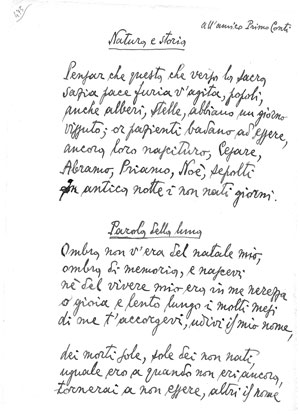 all'amico Primo Conti
Natura e storia
Pensar che questa che verso la sacra
sazia pace furia v'agita, popoli,
anche alberi, stelle, abbiano un giorno
vissuto; or pazienti badano ad essere,
ancora loro nascituro, Cesare,
Abramo, Priamo, Noè, sepolti
antica notte i non nati giorni.
Parola della luna
Ombra non v'era del natale mio,
ombra di memoria, e nascevi
nè del vivere mio era in me nerezza
o gioia e lento lungo i molti mesi
di me t'accorgevi, udivi il mio nome,
dei morti sole, sole dei non nati
uguale ero a quando non eri ancora,
tornerai a non essere, altri il nome